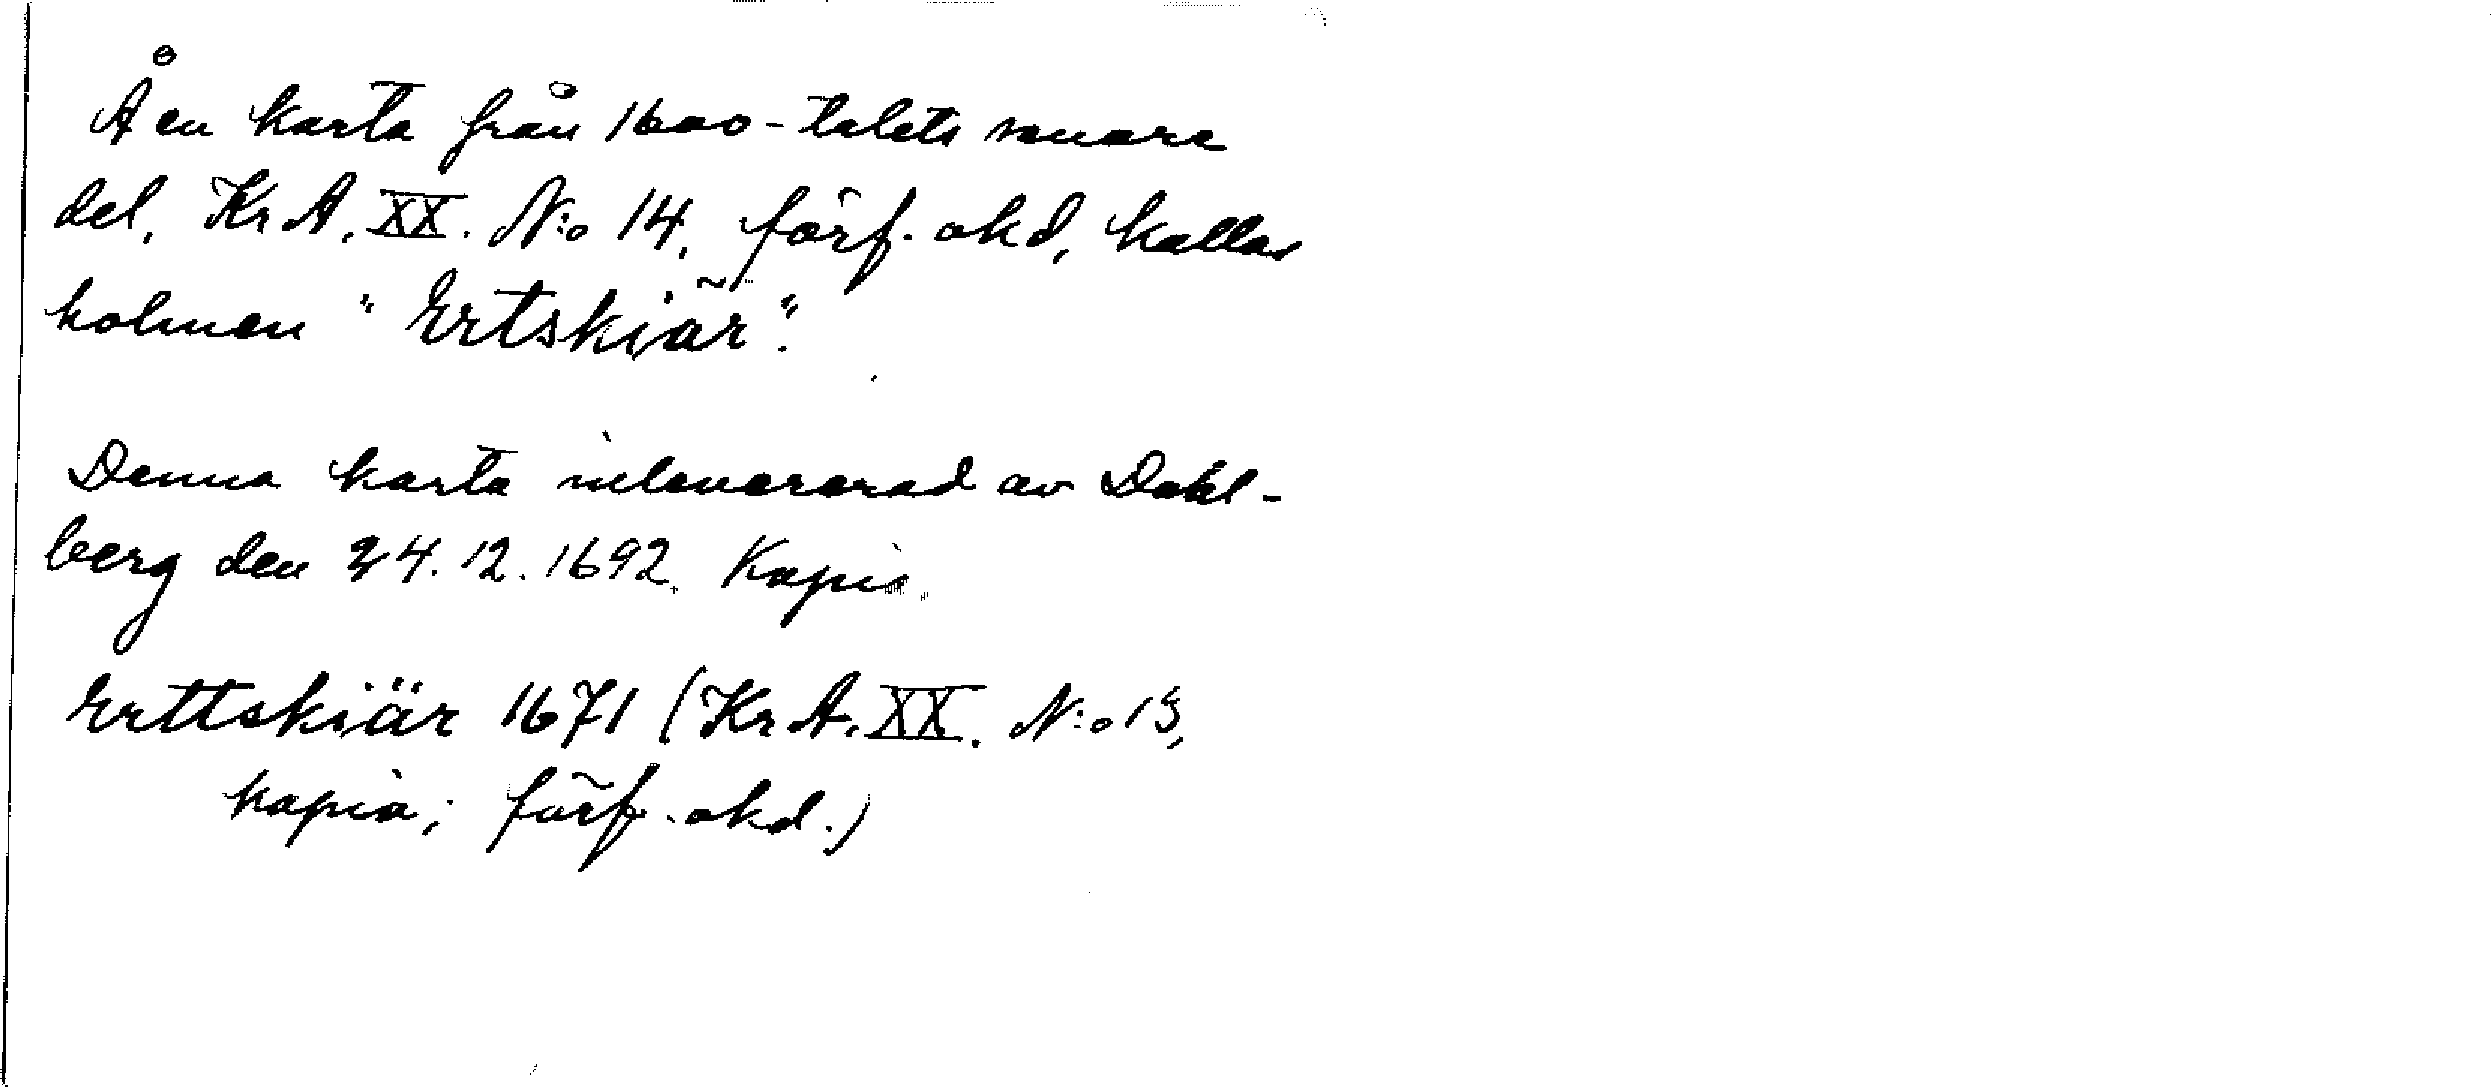 Å en karta från 1600-talets senare
del, KrA. XX. N:o 14, förf. okd, kallas
holmen "Ertskiär".
Denna karta inlevererad av Dahl-
berg den 24.12.1692. Kopia.
Erttskiär 1671 (KrA. XX. N:o 13,
kopia; förf. okd.)